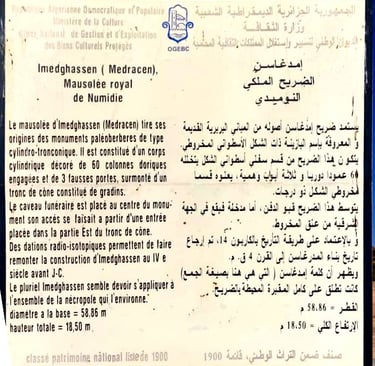 République Algérienne Démocratique et Populaire
Ministère de la Culture
Office National de Gestion et d'Exploitation
des Biens Culturels Protégés
OGEBC
الجمهورية الجزائرية الديمقراطية الشعبية
وزارة الثقافة
الديوان الوطني لتسيير وإستغلال الممتلكات الثقافية المحمية
Imedghassen ( Medracen),
Mausolée royal
de Numidie
إمدغاسن
الضريح الملكي
النوميدي
Le mausolée d'Imedghassen (Medracen) tire ses
origines des monuments paléoberbères de type
cylindro-tronconique. Il est constitué d'un corps
cylindrique décoré de 60 colonnes doriques
engagées et de 3 fausses portes, surmonté d'un
tronc de cône constitué de gradins.
Le caveau funéraire est placé au centre du monu-
ment son accès se faisait a partir d'une entrée
placée dans la partie Est du tronc de cône.
Des dations radio-isotopiques permettent de faire
remonter la construction d'Imedghassen au IV e
siècle avant J-C.
Le pluriel Imedghassen semble devoir s'appliquer à
l'ensemble de la nécropole qui l'environne.
diamètre a la base = 58,86 m
hauteur totale = 18,50 m
يستمد ضريح إمدغاسن أصوله من المباني البربرية القديمة
و المعروفة بإسم البازينة ذات الشكل الأسطواني المخروطي،
يتكون هذا الضريح من قسم سفلي أسطواني الشكل يتخلله
60 عمودا دوريا و ثلاثة أبواب وهمية، يعلوه قسما
مخروطي الشكل ذو درجات.
يتوسط هذا الضريح قبو الدفن، أما مدخله فيقع في الجهة
الشرقية من عنق المخروط.
و بالإعتماد على طريقة التأريخ بالكاربون 14، تم إرجاع
تاريخ بناء المدغاسن إلى القرن 4 ق. م.
ويظهر أن كلمة إمدغاسن ( التي هي هنا بصيغة الجمع)
كانت تطلق على كامل المقبرة المحيطة بالضريح.
القطر = 58.86 م
الإرتفاع الكلي = 18.50 م
classé patrimoine national liste de 1900
صنف ضمن التراث الوطني، قائمة 1900